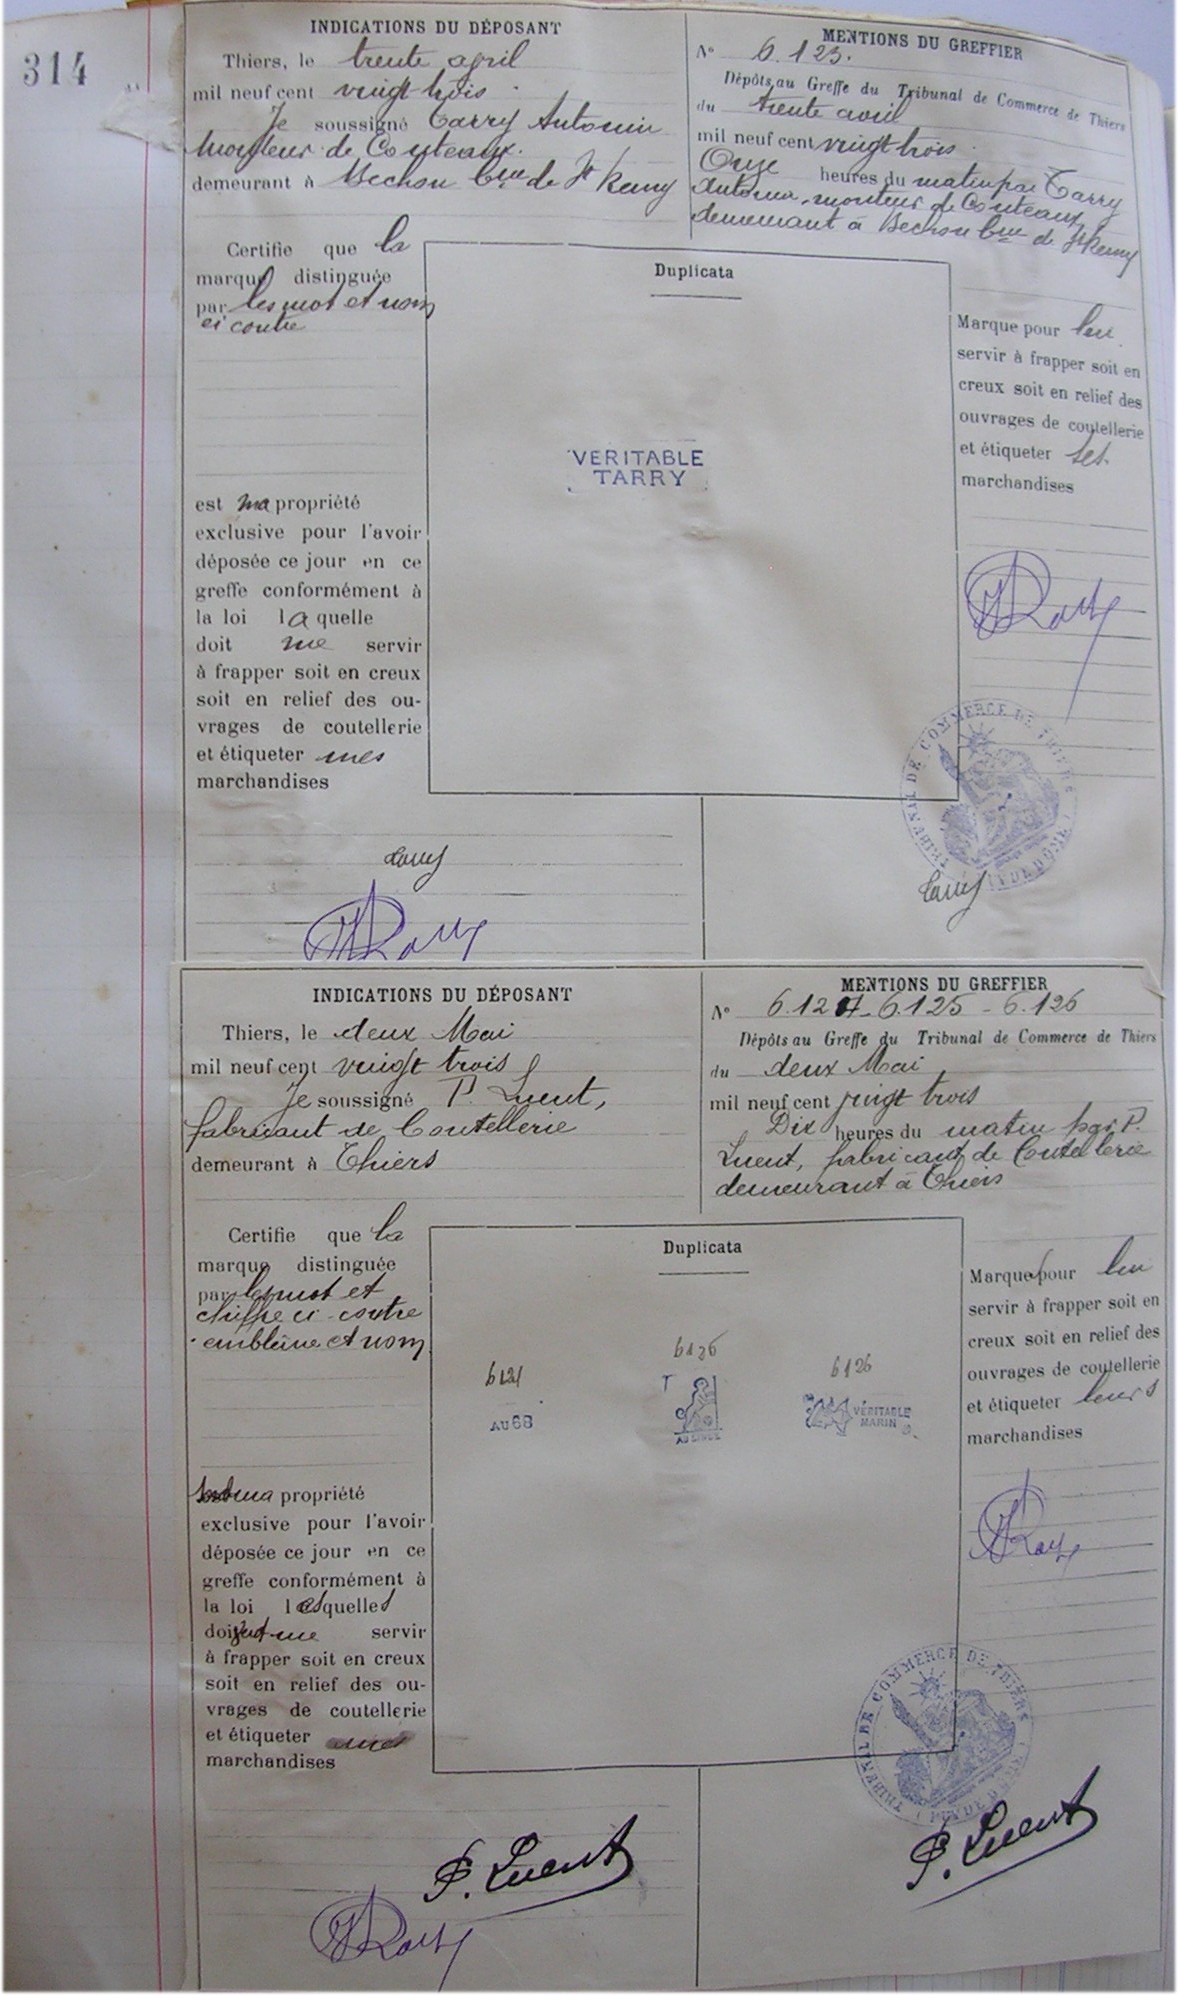 314
INDICATIONS DU DÉPOSANT
Thiers, le trente april
mil neuf cent vingt trois
Je soussigné Tarry Antonin
Monteur de Couteaux.
demeurant à Bechon Cne de St Remy
MENTIONS DU GREFFIER
No 6.123.
Dépôts au Greffe du Tribunal de Commerce de Thiers
du trente avril
mil neuf cent vingt trois
Onze heures du matin par Tarry
Antonin, monteur de Couteaux,
demeurant à Bechon Cne de St Remy
Certifie que la
marque distinguée
par les mot et nom
ci contre
est ma propriété
exclusive pour l'avoir
déposée ce jour en ce
greffe conformément à
la loi laquelle
doit me servir
à frapper soit en creux
soit en relief des ou-
vrages de coutellerie
et étiqueter mes
marchandises
Tarry
Duplicata
VERITABLE
TARRY
Marque pour leu
servir à frapper soit en
creux soit en relief des
ouvrages de coutellerie
et étiqueter ses
marchandises
TRIBUNAL DE COMMERCE DE THIERS
Tarry
INDICATIONS DU DÉPOSANT
Thiers, le deux Mai
mil neuf cent vingt trois
Je soussigné P. Luent,
fabricant de Coutellerie
demeurant à Thiers
MENTIONS DU GREFFIER
No 6.124-6.125-6.126
Dépôts au Greffe du Tribunal de Commerce de Thiers
du deux Mai
mil neuf cent vingt trois
Dix heures du matin par P.
Luent, fabricant de Coutellerie
demeurant à Thiers
Certifie que la
marque distinguée
par le mot et
chiffre ci-contre
emblème et nom
ma propriété
exclusive pour l'avoir
déposée ce jour en ce
greffe conformément à
la loi lesquelles
doivent me servir
à frapper soit en creux
soit en relief des ou-
vrages de coutellerie
et étiqueter mes
marchandises
P. Luent
Duplicata
AU 68
T
6126
VÉRITABLE
MARIN
Marque pour leu
servir à frapper soit en
creux soit en relief des
ouvrages de coutellerie
et étiqueter leurs
marchandises
TRIBUNAL DE COMMERCE DE THIERS
P. Luent